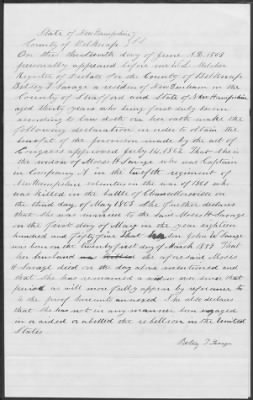 State of New Hampshire
County of Belknap SS.
On this thirteenth day of June A.D. 1863
personally appeared before me
Register of Probate for the County of Belknap
Betsey T. Savage a resident of New Durham in the
County of Strafford and State of New Hampshire
aged thirty years who being first duly sworn
according to law doth on her oath make the
following declaration in order to obtain the
benefit of the provision made by the act of
Congress approved July 14, 1862 That she is
the widow of Moses H Savage who was Captain
in Company A in the twelfth regiment of
New Hampshire volunteers in the war of 1861 who
was killed in the battle of Chancellorsville on
the third day of May 1863. She further declares
that she was married to the said Moses H Savage
on the first day of May in the year eighteen
hundred and fifty five that John W. Savage
was born on the twenty first day of March 1858 That
her husband the aforesaid Moses
H Savage died on the day above mentioned and
that she has remained a widow ever since that
period as will more fully appear by reference to
the proof hereunto annexed She also declares
that she has not in any manner been engaged
in or aided or abetted the rebellion in the United
States
Betsey T Savage